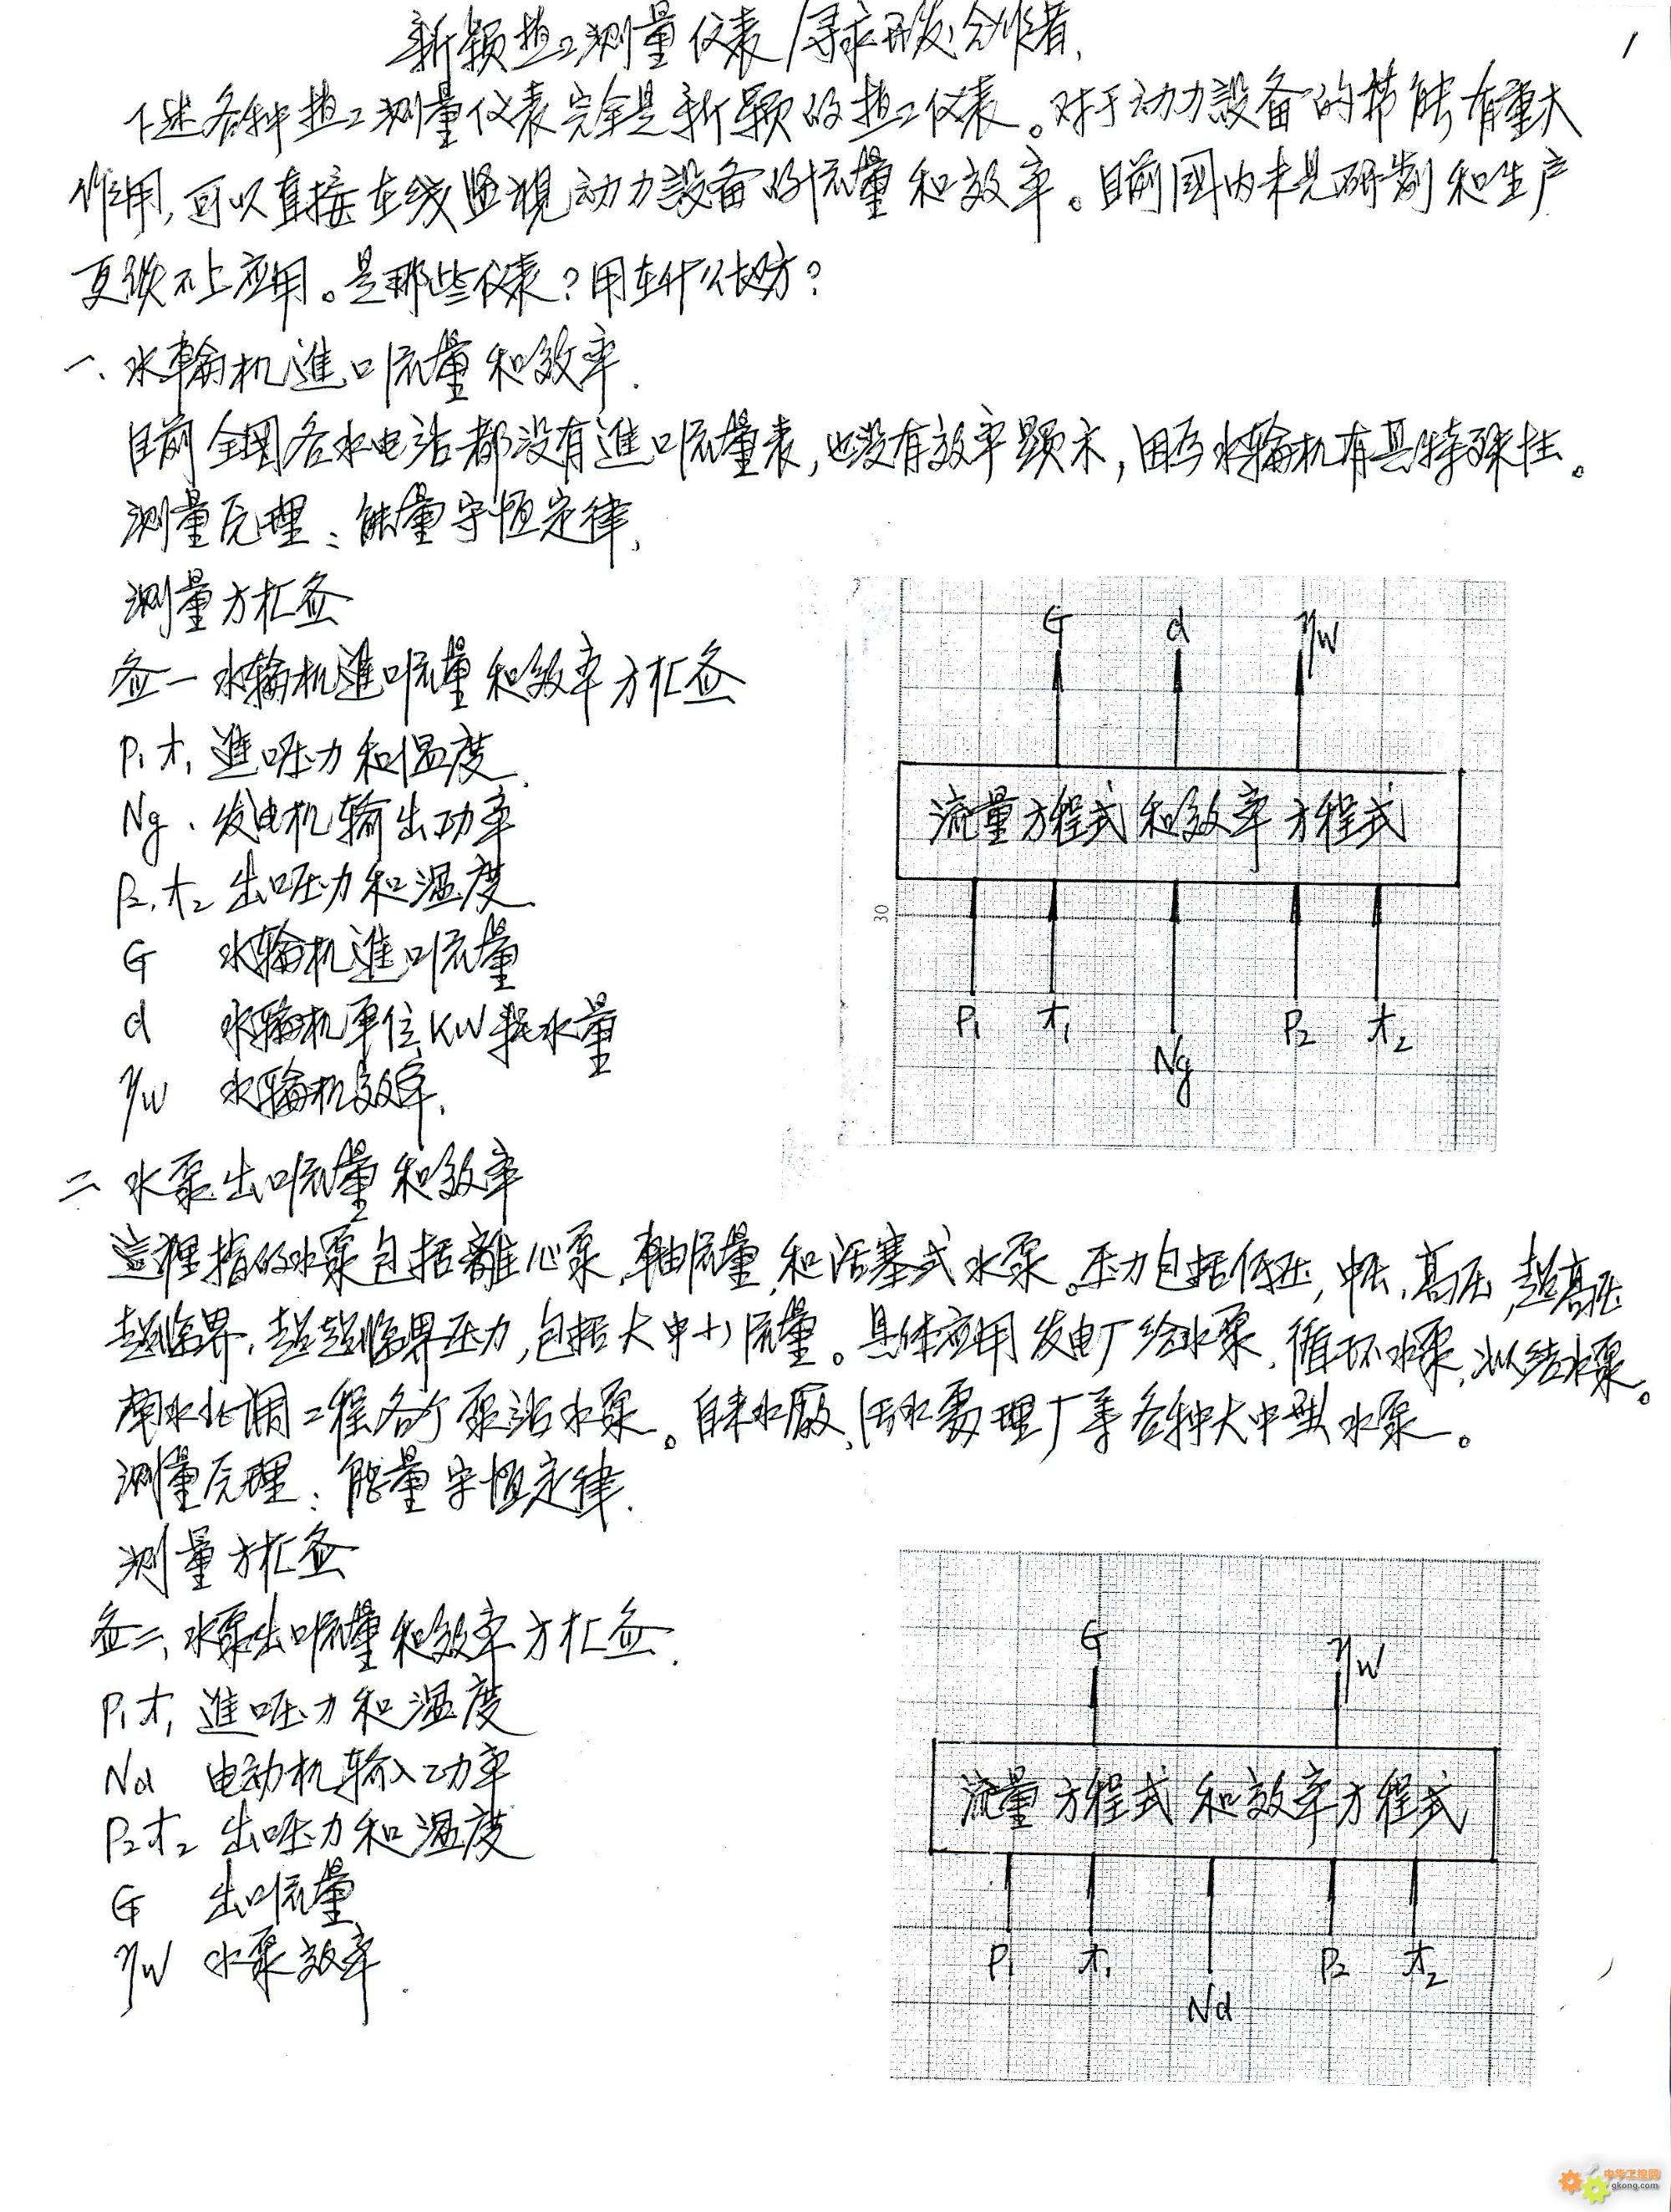 新颖热工测量仪表/寻求开发合作者.
1
下述各种热工测量仪表完全是新颖的热工仪表。对于动力設备的节能有重大
作用,可以直接在线监視动力設备的流量和效率。目前国内未見研制和生产
更谈不上应用。是那些仪表?用在什么地方?
一、水輪机進口流量和效率.
目前全国各水电站都没有進口流量表,也没有效率顕示,由于水輪机有其特殊性。
测量原理:能量守恒定律,
测量方框图
图一 水輪机進口流量和效率方框图
P1 t1 進口压力和温度.
Ng、发电机输出功率
P2,t2 出口压力和温度.
G 水輪机進口流量
d 水輪机单位KW耗水量
ηw 水輪机效率.
G d ηw
流量方程式和效率方程式
30
P1 t1 Ng P2 t2
二 水泵出口流量和效率
這裡指的水泵包括離心泵,軸流量,和活塞式水泵。压力包括低压,中压,高压,超高压
超临界,超超临界压力,包括大中小流量。具体应用发电厂给水泵,循环水泵,凝结水泵。
南水北调工程各个泵站水泵。自来水厰、污水處理厂等各种大中型水泵。
测量原理:能量守恒定律.
测量方框图
图二、水泵出口流量和效率方框图.
P1 t1 進口压力和温度
Nd 电动机输入功率
P2 t2 出口压力和温度
G 出口流量
ηw 水泵效率.
G ηw
流量方程式和效率方程式
P1 t1 Nd P2 t2
中华工控网
gkong.com